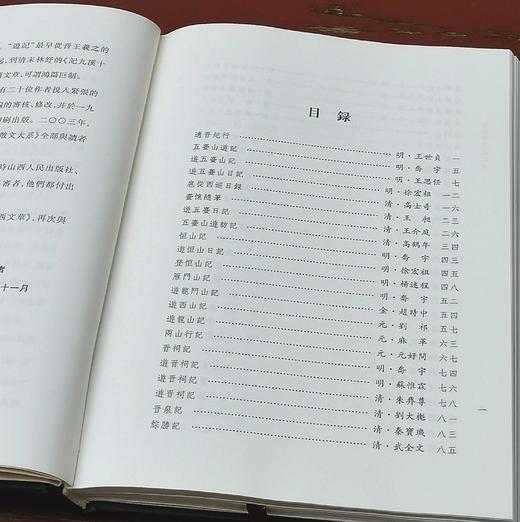 。“遊記”最早從晋王羲之的
，到清末林紓的《記九溪十
文章，可謂鴻篇巨制。
有二十位作者投入緊張的
的審核、修改，并於一九
刷出版。二〇〇三年，
散文大系》全部與讀者
時山西人民出版社、
審者，他們都付出
西文章》，再次與
者
十一月
目録
適晋紀行 明·王世貞 一
五臺山遊記 明·喬宇 五
遊五臺山記 明·王思任 七
遊五臺山日記 明·徐宏祖 一二
扈從西巡日録 清·高士奇 一六
臺懷隨筆 清·王昶 二一
遊五臺日記 清·王介庭 二四
五臺山遊訪記 清·高鶴年 三四
恒山記 明·喬宇 四三
遊恒山日記 明·徐宏祖 四五
登恒山記 明·楊述程 四八
雁門山記 明·喬宇 五二
遊龍門山記 金·趙時中 五四
遊西山記 元·劉祁 五七
遊龍山記 元·麻革 六三
兩山行記 元·元好問 六八
晋祠記 明·喬宇 七四
遊晋祠記 明·蘇惟霖 七六
遊晋祠記 清·朱彝尊 七八
遊晋祠記 清·劉大櫆 八一
晋泉記 清·秦寶璣 八三
綜勝記 清·武全文 八五
一